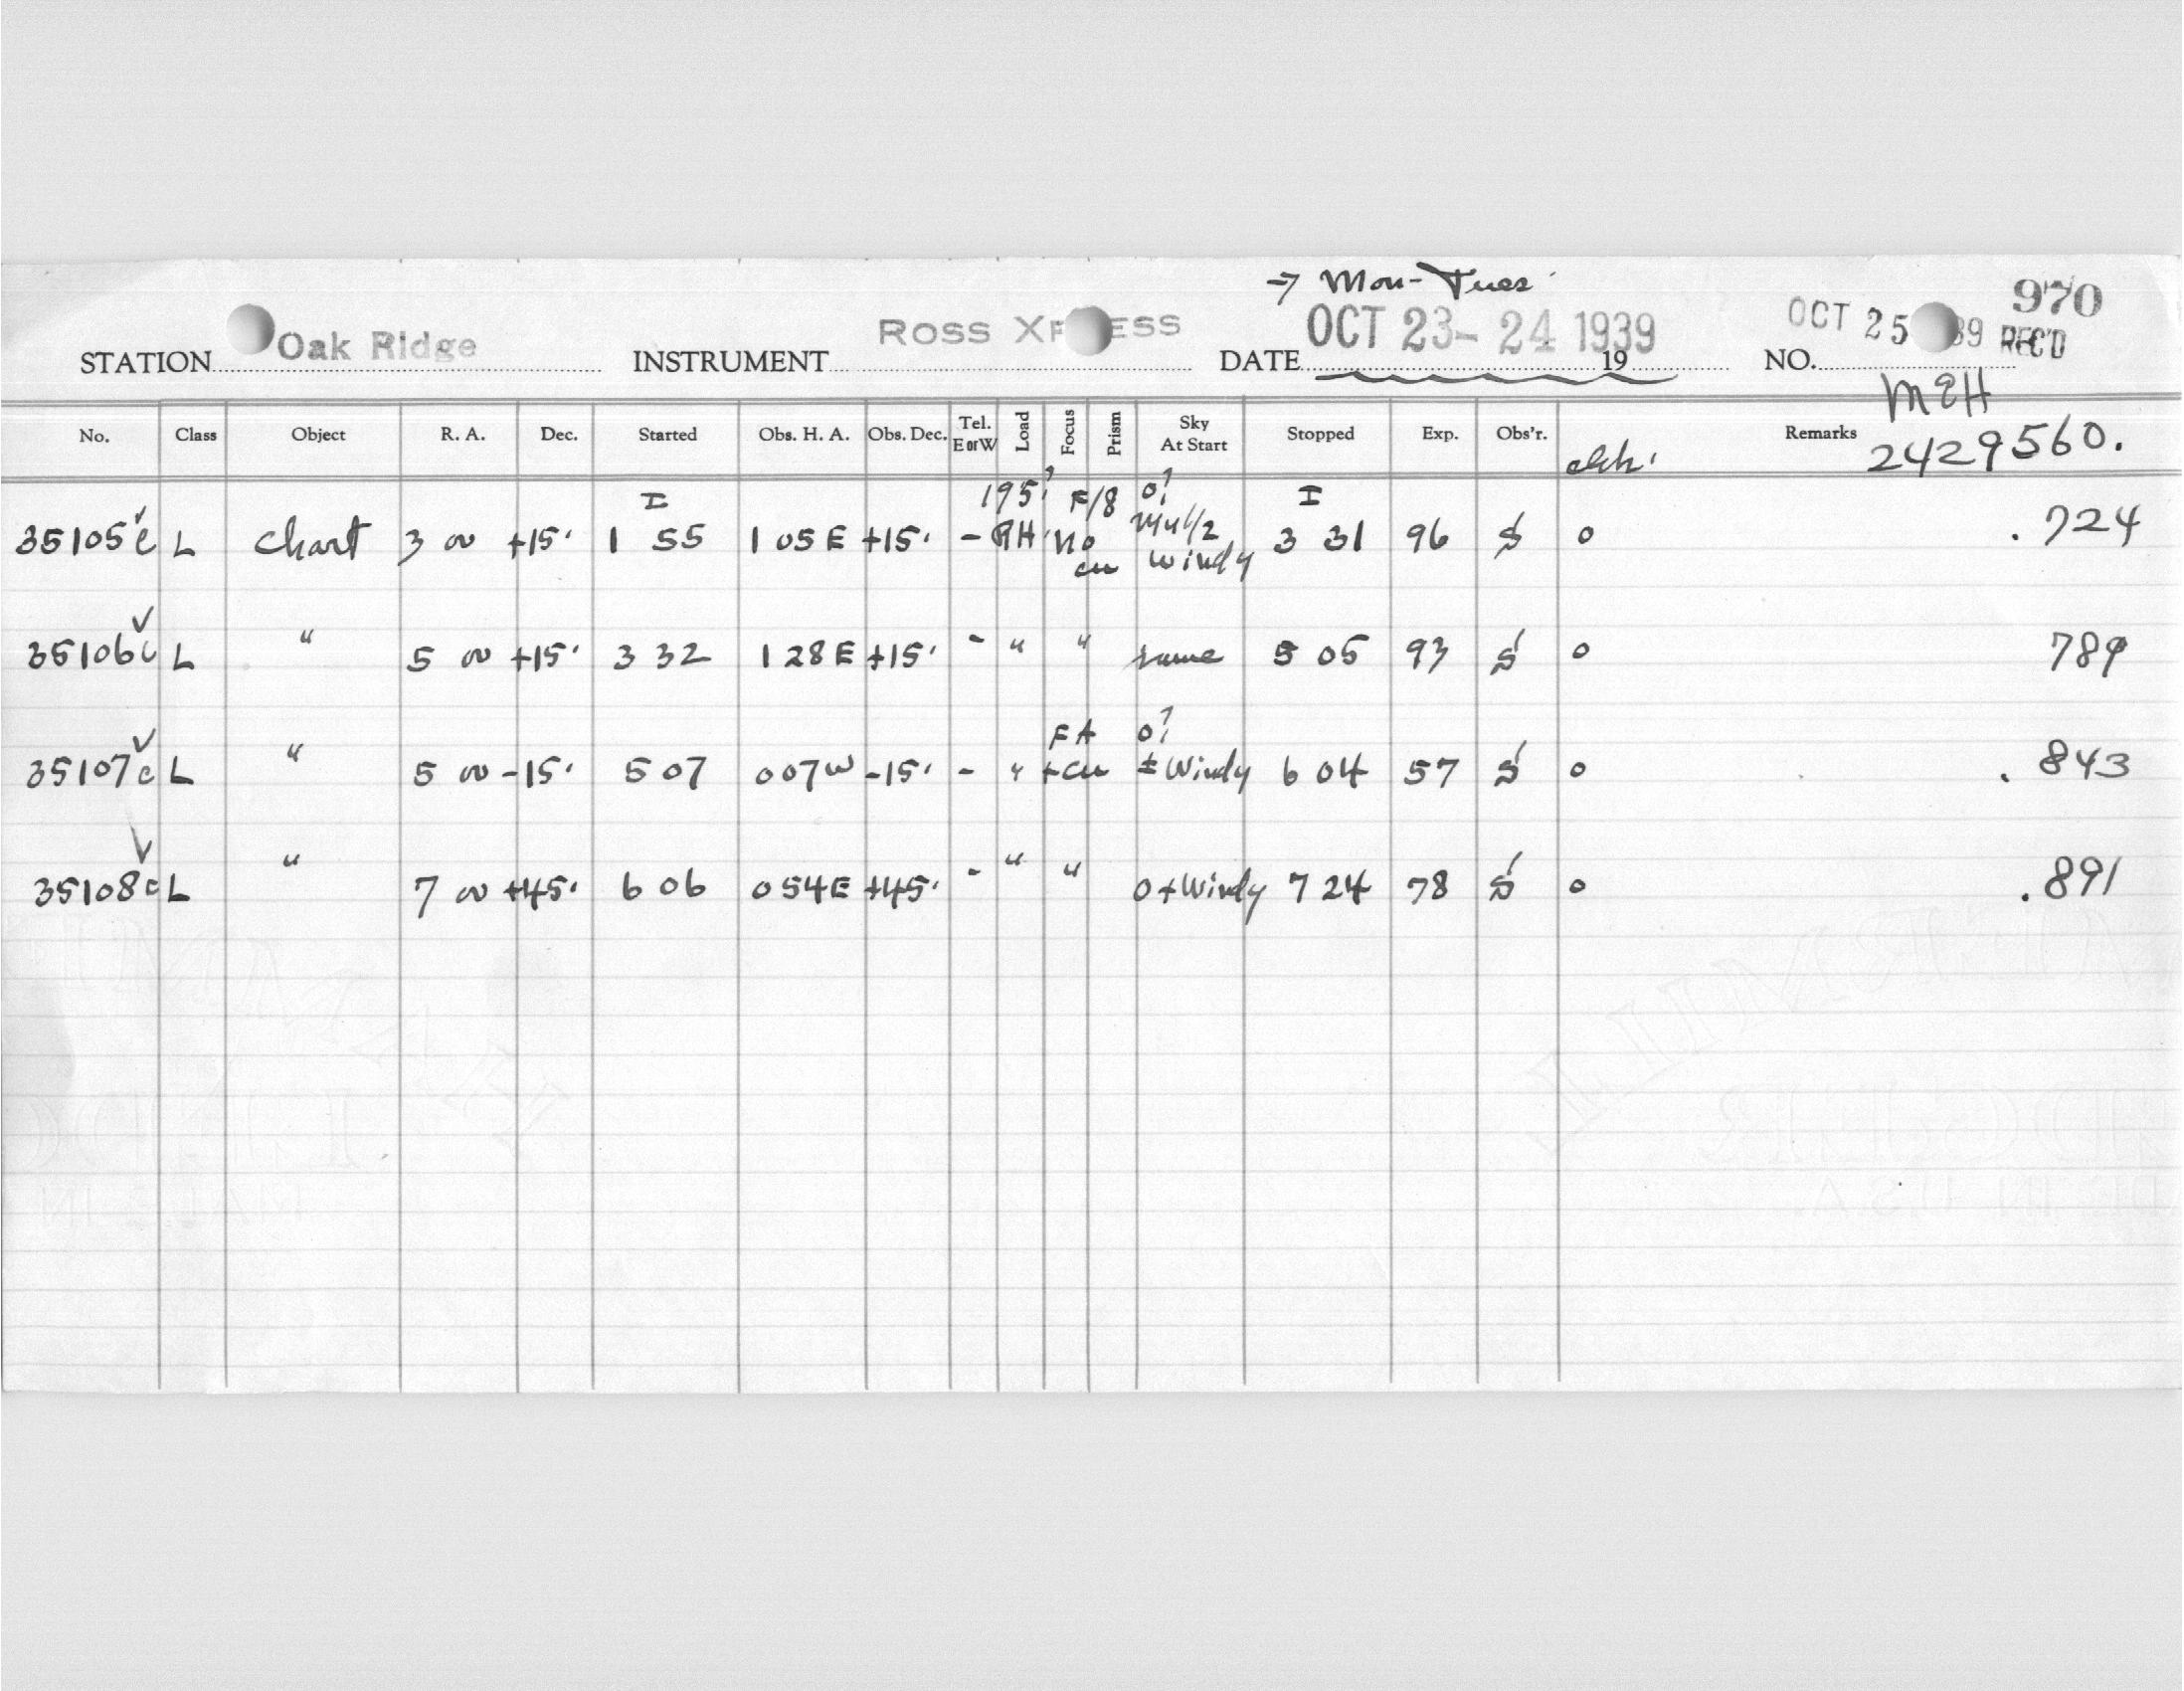 → Mon-Tues
STATION Oak Ridge INSTRUMENT ROSS XPRESS DATE OCT 23-24 1939 19 NO. OCT 25 39 REC'D 970
M&H
No. Class Object R. A. Dec. Started Obs. H. A. Obs. Dec. Tel. E or W Load Focus Prism Sky At Start Stopped Exp. Obs'r. clch. Remarks 2429560.
I 195? F/8 0? I
35105 c L Chart 3 00 +15° 1 55 1 05 E +15° - RH No 1/2 3 31 96 S 0 .724
cu Windy
35106 c L " 5 00 +15° 3 32 1 28 E +15° - " " same 5 05 93 S 0 789
FA 0?
35107 c L " 5 00 -15° 5 07 0 07 W -15° - " +cu ± Windy 6 04 57 S 0 .843
35108 c L " 7 00 +45° 6 06 0 54 E +45° - " " 0+ Windy 7 24 78 S 0 .891